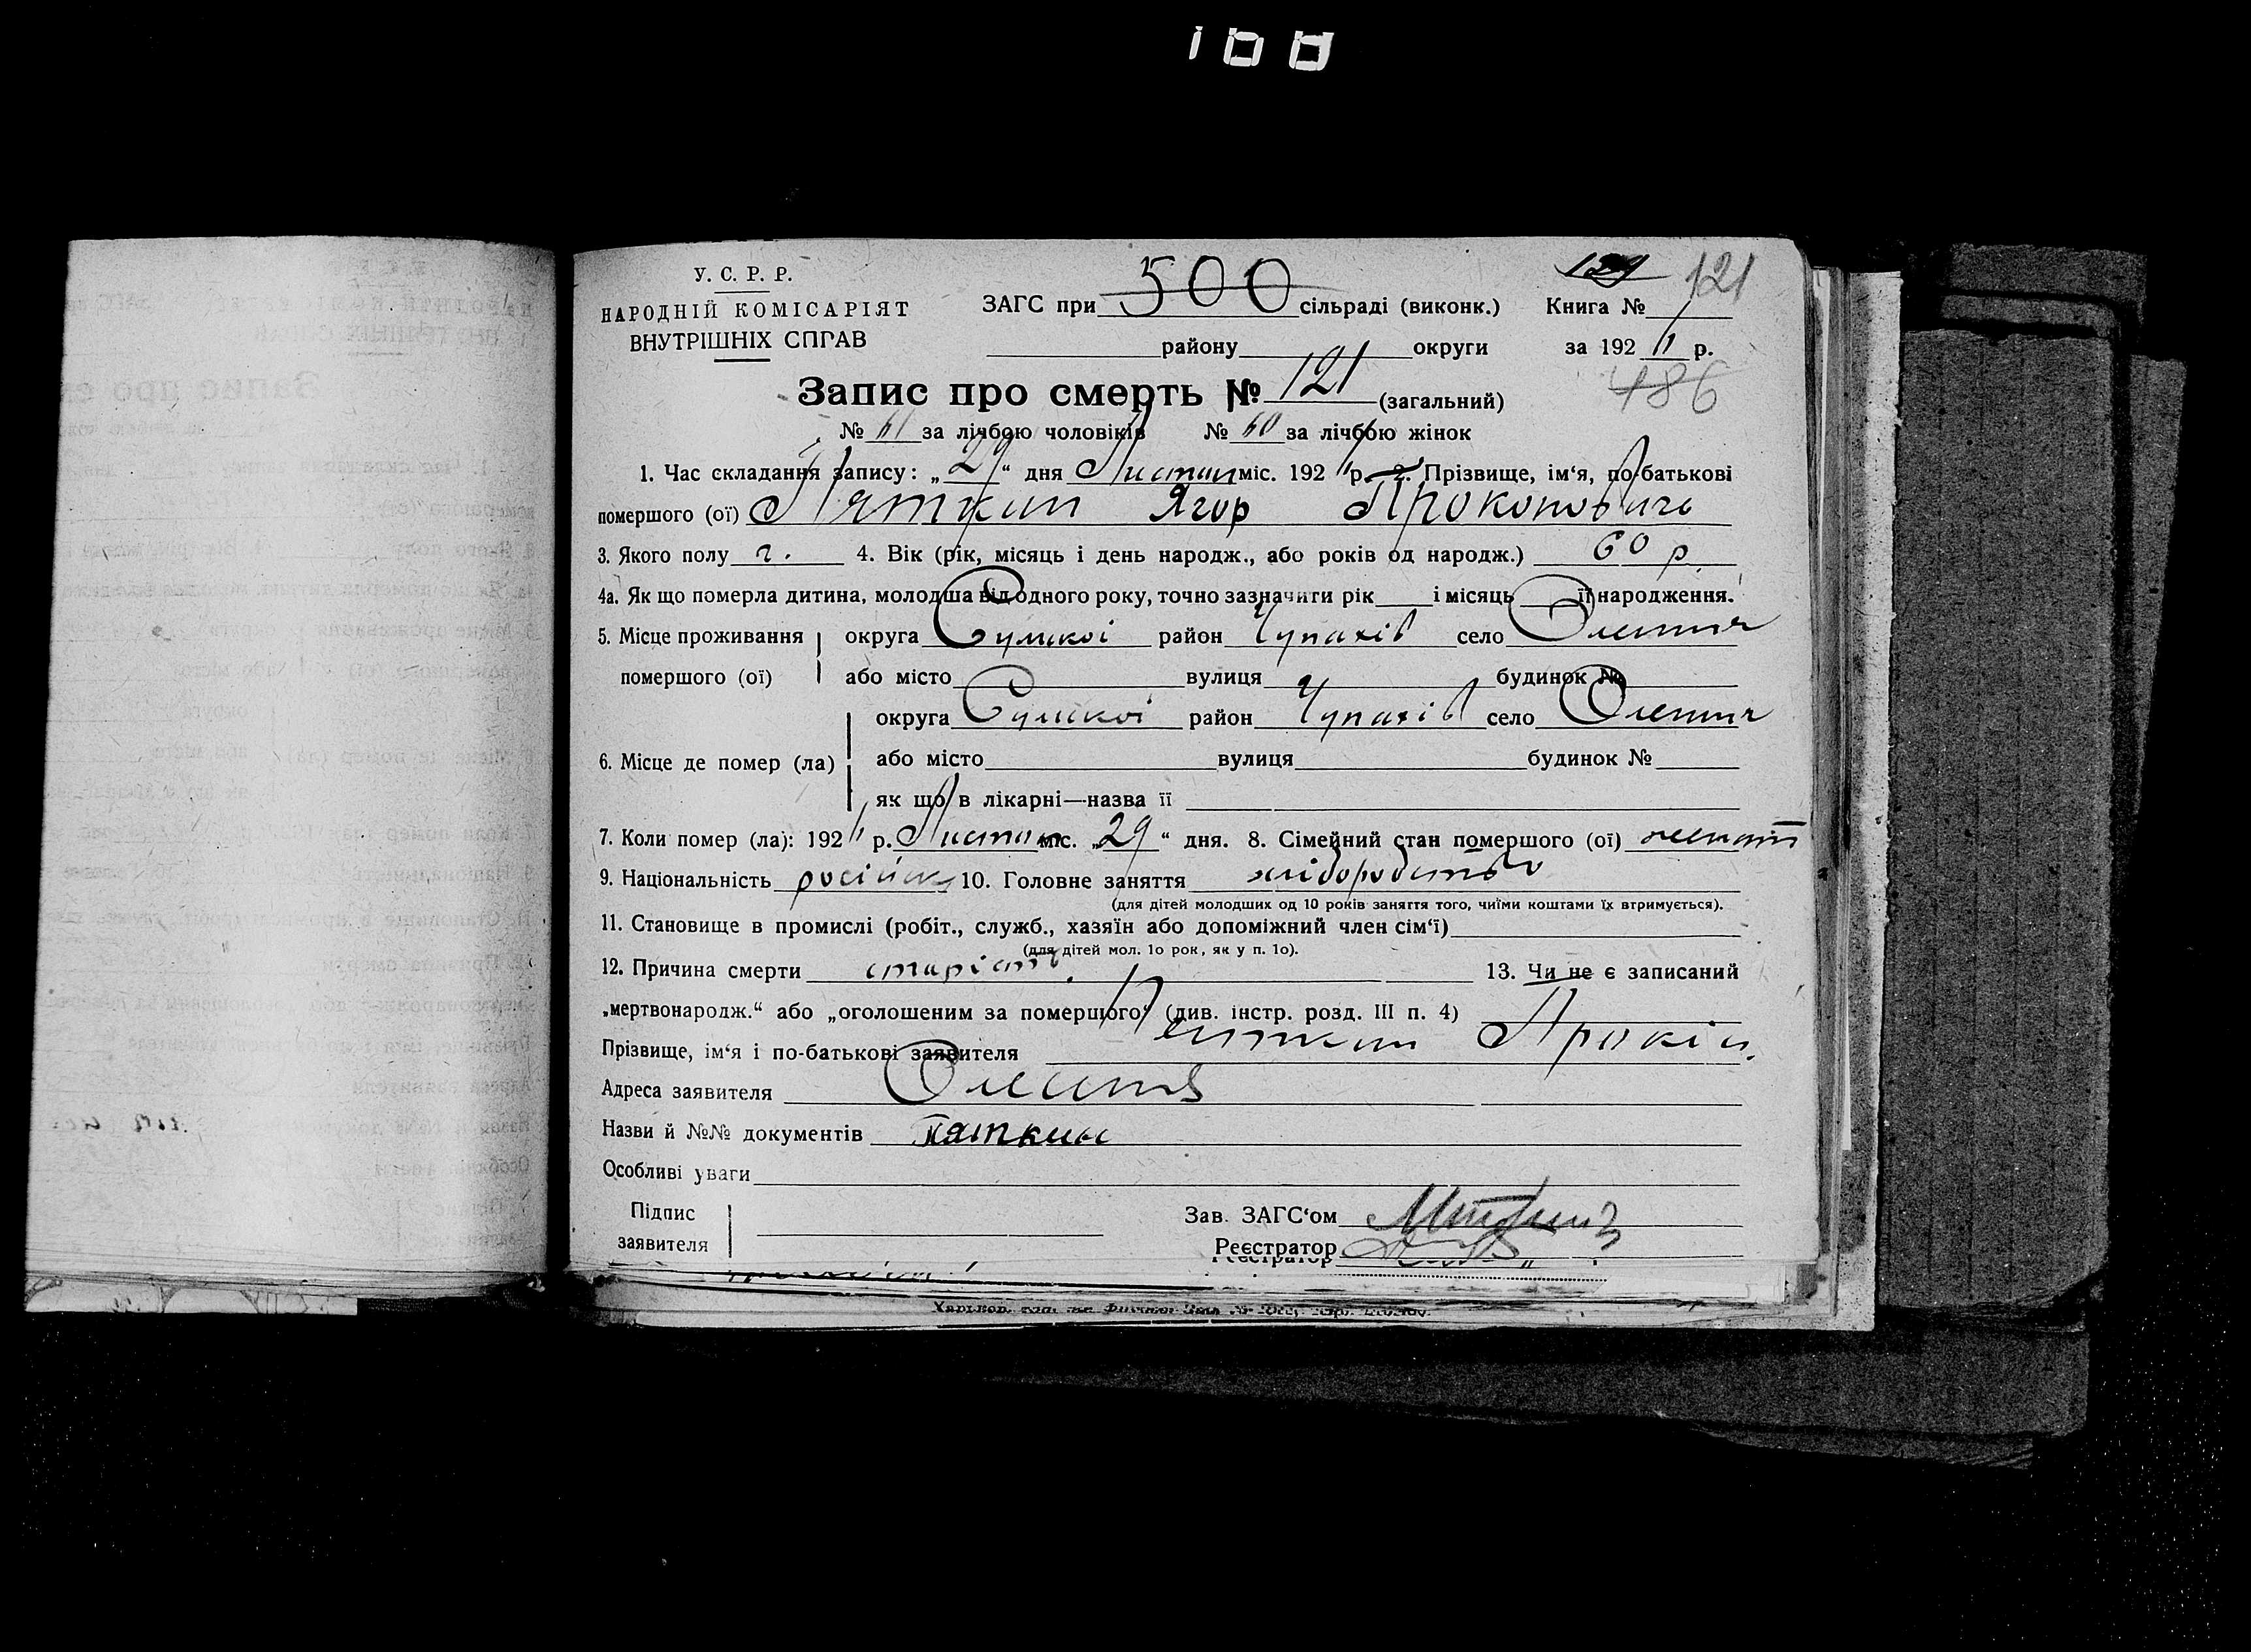 У. С. Р. Р.
НАРОДНІЙ КОМІСАРІЯТ
ВНУТРІШНІХ СПРАВ
ЗАГС при 500 сільраді (виконк.)
району округи
129 121
Книга №
за 192 р.
486
Запис про смерть № 121 (загальний)
№ 61 за лічбою чоловіків № 60 за лічбою жінок
1. Час складання запису: „29“ дня Листоп міс. 192 р. 2. Прізвище, ім‘я, по-батькові
помершого (ої) Пяткин Ягор Прокопович
3. Якого полу ч. 4. Вік (рік, місяць і день народж., або років од народж.) 60 р.
4а. Як що померла дитина, молодша від одного року, точно зазначити рік і місяць її народження.
5. Місце проживання округа Сумскоі район Чупахів село
помершого (ої) або місто вулиця будинок №
округа Сумскоі район Чупахів село
6. Місце де помер (ла) або місто вулиця будинок №
як що в лікарні—назва її
7. Коли помер (ла): 192 р. Листоп міс. „29“ дня. 8. Сімейний стан помершого (ої) женат
9. Національність російск 10. Головне заняття хліборобство
(для дітей молодших од 10 років заняття того, чиїми коштами їх втримується).
11. Становище в промислі (робіт., служб., хазяїн або допоміжний член сім‘ї)
(для дітей мол. 1о рок, як у п. 1о).
12. Причина смерти старість. 13. Чи не є записаний
„мертвонародж.“ або „оголошеним за помершого“ (див. інстр. розд. III п. 4)
Прізвище, ім‘я і по-батькові заявителя Пяткин Прокіп.
Адреса заявителя
Назви й №№ документів Пяткин
Особливі уваги
Підпис
заявителя
Зав. ЗАГС‘ом
Реєстратор
Реєстратор